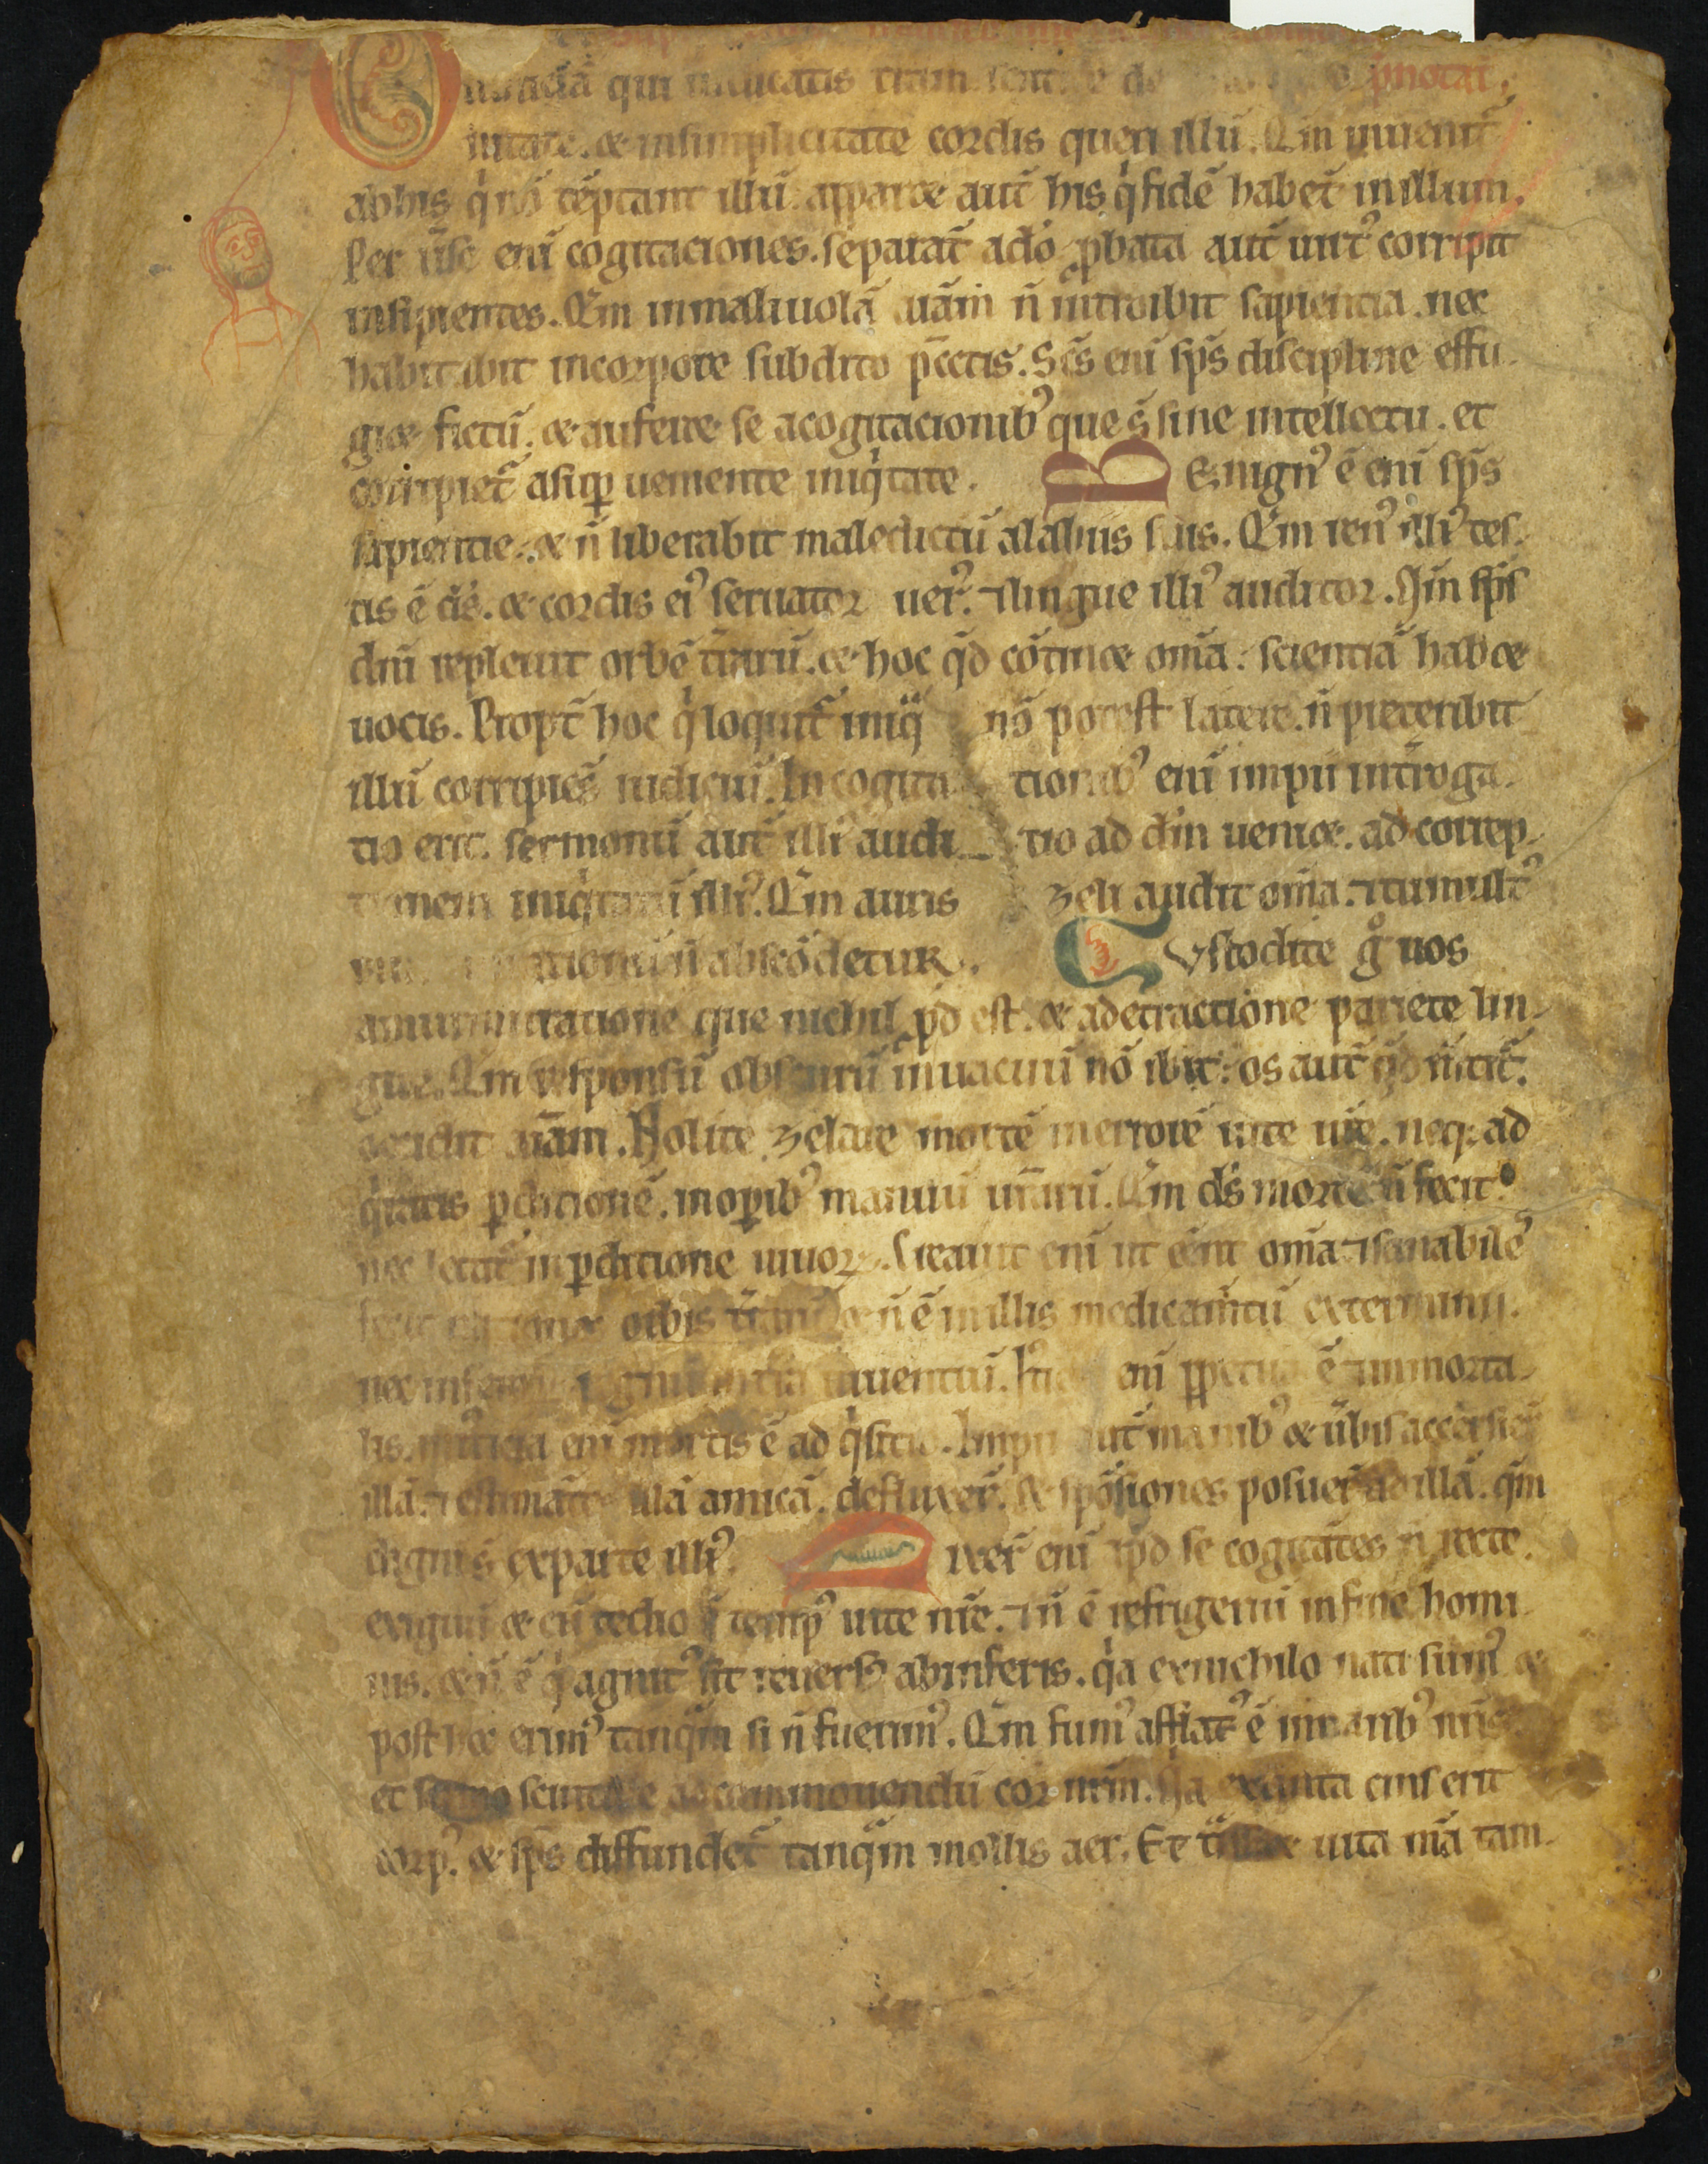 qui iudicatis p̄notat
nitate. & insimplicitate cordis queri illū. Qm̄ inuenit᷑
abhis q̇ nō tēptant illū. apparet aut̄ his q̇ fidē habēt inillum.
Per ūse eni cogitaciones. separāt adō. ꝓbata aut̄ uirt᷒ corripit
insipientes. Qm̄ inmaliuolā aīam n̄ introibit sapientia. nec
habitabit incorpore subdito pc̄cātis. Sc̄s eni sp̄s discipline effu-
giet fictū. & auferet se acogitacionib᷒ que s̄ sine intellectu. et
corripiet᷑ asuꝑ ueniente iniq̇tate. Benign᷒ ē eni sp̄s
sapientie. & n̄ liberabit maledictū alabiis suis. Qm̄ ren᷒ illi᷒ tes-
tis ē ds̄. & cordis ei᷒ seruator uer᷒. ⁊lingue illi᷒ auditor. Qm̄ sp̄s
dn̄i repleuit orbē t̄rarū. & hoc q̄d cōtinet om̄a: scientiā habet
uocis. Propt̄ hoc q̇ loquit᷑ iniq̄ nō potest latere. n̄ preteribit
illū corripiēs iudiciū. In cogita tionib᷒ eni impii int̄roga-
tio erit. sermonū aut̄ illi᷒ audi- tio ad dm̄ ueniet. ad correp-
tionem iniq̇tatū illi᷒. Qm̄ auris zeli audit om̄a. ⁊tumult᷒
n̄ abscōdetur. Custodite g̊ uos
amurmuratione que nichil ꝓd est. & adetractione parcite lin-
gue. Qm̄ responsū obscurū inuacuū nō ibit: os aut̄ q̄d m̄tit᷑.
occidit aīam. Nolite zelare mortē inerrore uite ur̄e. neq; ad
q̇ratis ꝑditionē. inoꝑib᷒ manuū ur̄arū. Qm̄ ds̄ mortē n̄ fecit.
nec letat᷑ inꝑditione uiuoꝝ. Creauit eni ut eēnt om̄a ⁊sanabiles
orbis t̄rarū & n̄ ē inillis medicam̄tū exterminii.
nec inferorū regnū int̄ra inuentū. Iust. eni ꝑpetua ē ⁊immorta-
lis. iniusticia eni mortis ē ad q̇sitio. Impii aut̄ manib᷒ & ūbis accersier̄
illā. ⁊ estimātes illā amicā. defluxer̄. & spōsiones posuer̄ adillā. qm̄
digni s̄ exparte illi᷒. Dixer̄ eni ap̄d se cogitātes n̄ recte.
exiguū & cū tedio ē temp᷒ uite nr̄e. ⁊n̄ ē refrigeriū infine homi-
nis. & n̄ ē q̇ agnit᷒ sit reuers᷒ abinferis. q̇a exnichilo nati sum᷒ &
post hoc erim᷒ tanq̄m si n̄ fuerim᷒. Qm̄ fum᷒ afflat᷒ ē innarib᷒ nr̄is
et sermo scintille adcommouendū cor nr̄m. Q̇a extincta cinis erit
corp᷒. & sp̄s diffundet᷑ tanq̄m mollis aer. Et t̄nsiet uita nr̄a tam-